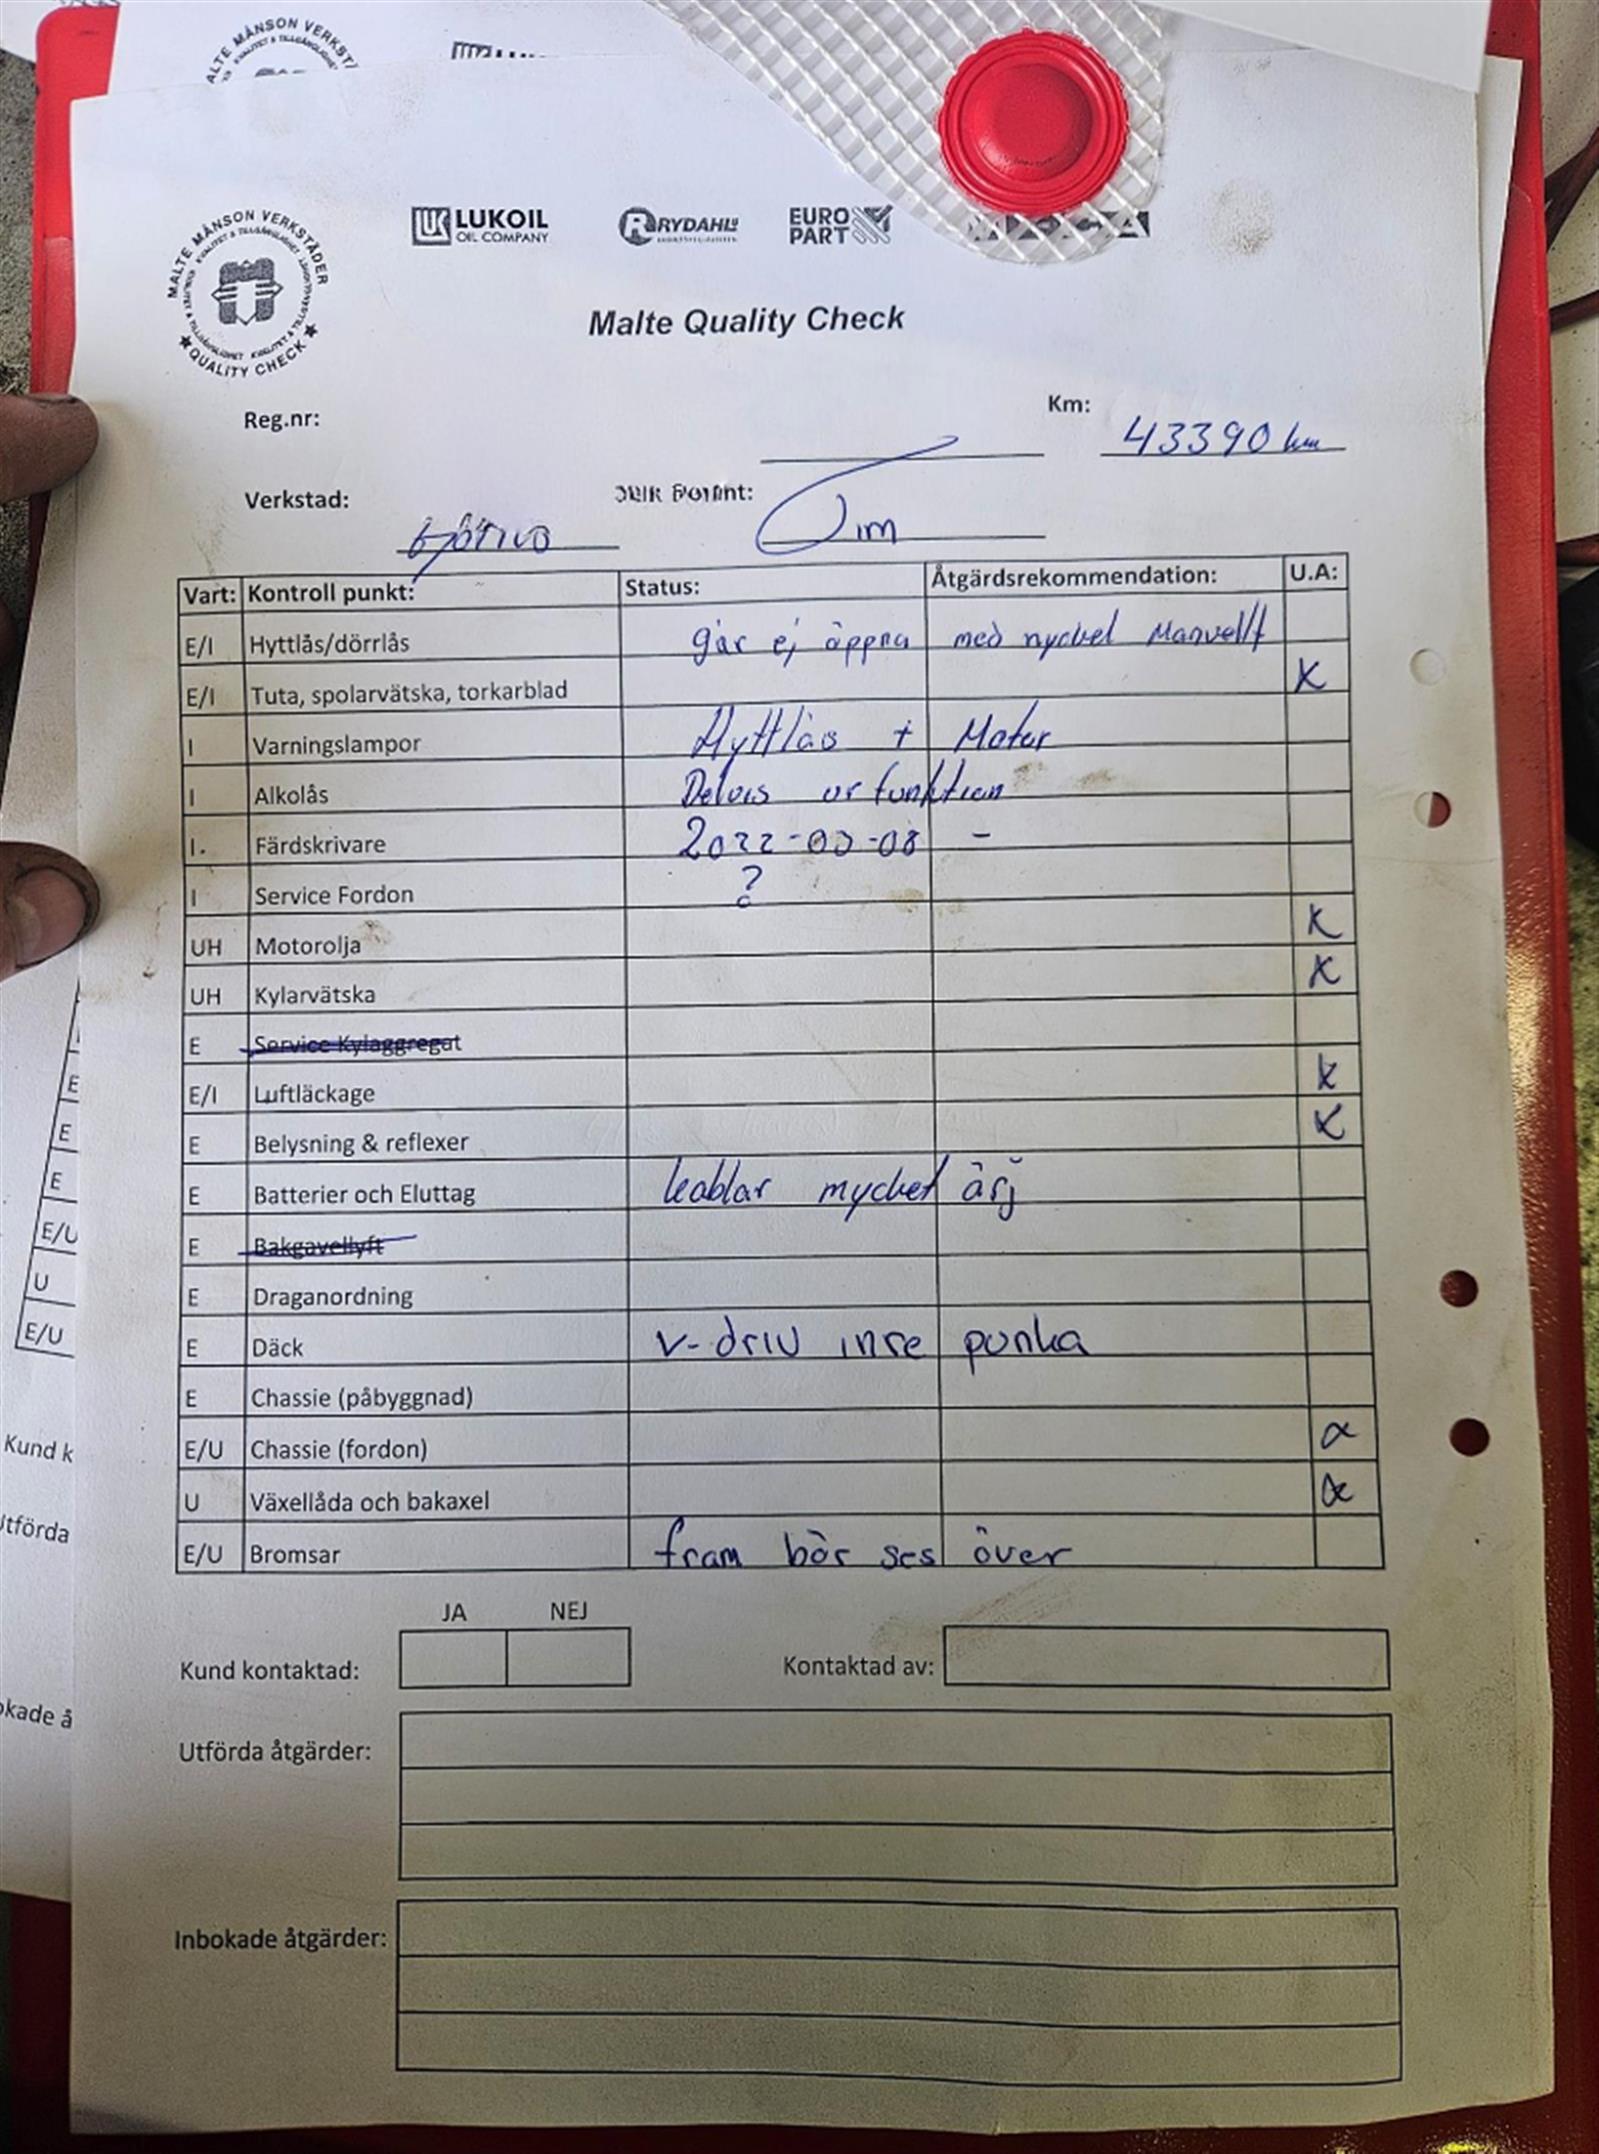 ALTE MÅNSON VERKST
MALTE MÅNSON VERKSTÄDER
QUALITY CHECK
LUKOIL
OIL COMPANY
RYDAHLS
EURO
PART
Malte Quality Check
Reg.nr:
Km: 43390 km
Verkstad:
Tim
Vart: Kontroll punkt: Status: Åtgärdsrekommendation: U.A:
E/I Hyttlås/dörrlås går ej öppna med nyckel Manuellt
E/I Tuta, spolarvätska, torkarblad X
I Varningslampor Hyttlås + Motor
I Alkolås Delvis ur funktion
I. Färdskrivare 2022-03-08 -
I Service Fordon ?
UH Motorolja X
UH Kylarvätska X
E Service Kylaggregat
E/I Luftläckage X
E Belysning & reflexer X
E Batterier och Eluttag kablar mycket ärj
E Bakgavellyft
E Draganordning
E Däck V-driv inre punka
E Chassie (påbyggnad)
E/U Chassie (fordon) X
U Växellåda och bakaxel X
E/U Bromsar fram bör ses över
JA NEJ
Kund kontaktad: Kontaktad av:
Utförda åtgärder:
Inbokade åtgärder:
E
E
E
E/U
U
E/U
Kund k
Utförda
okade å